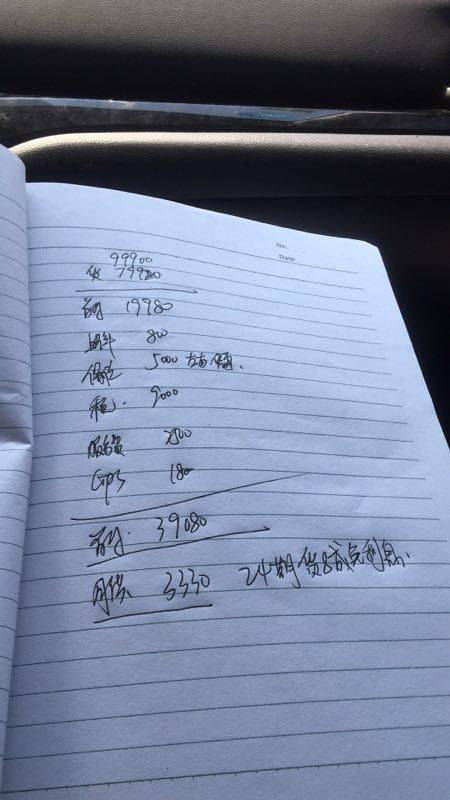 No.
Date
99900
贷 79920
首付 19980
上牌 800
保险 5000 左右 保险.
税. 9000
服务费 2500
GPS 1800
首付. 39080
月供 3330 24期 贷8成免利息.